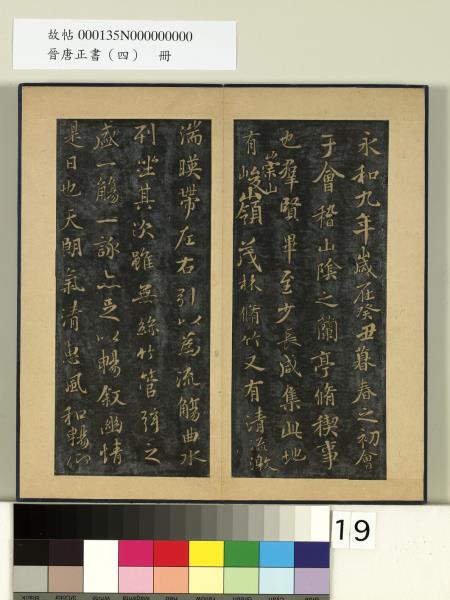 故帖 000135N000000000
晉唐正書（四） 冊
永和九年歲在癸丑暮春之初會
于會稽山陰之蘭亭脩稧事
也羣賢畢至少長咸集此地
有崇山峻嶺茂林脩竹又有清流激
湍暎帶左右引以為流觴曲水
列坐其次雖無絲竹管弦之
盛一觴一詠亦足以暢敘幽情
是日也天朗氣清惠風和暢仰
19
Black
White
Magenta
Red
Yellow
Green
Cyan
Blue